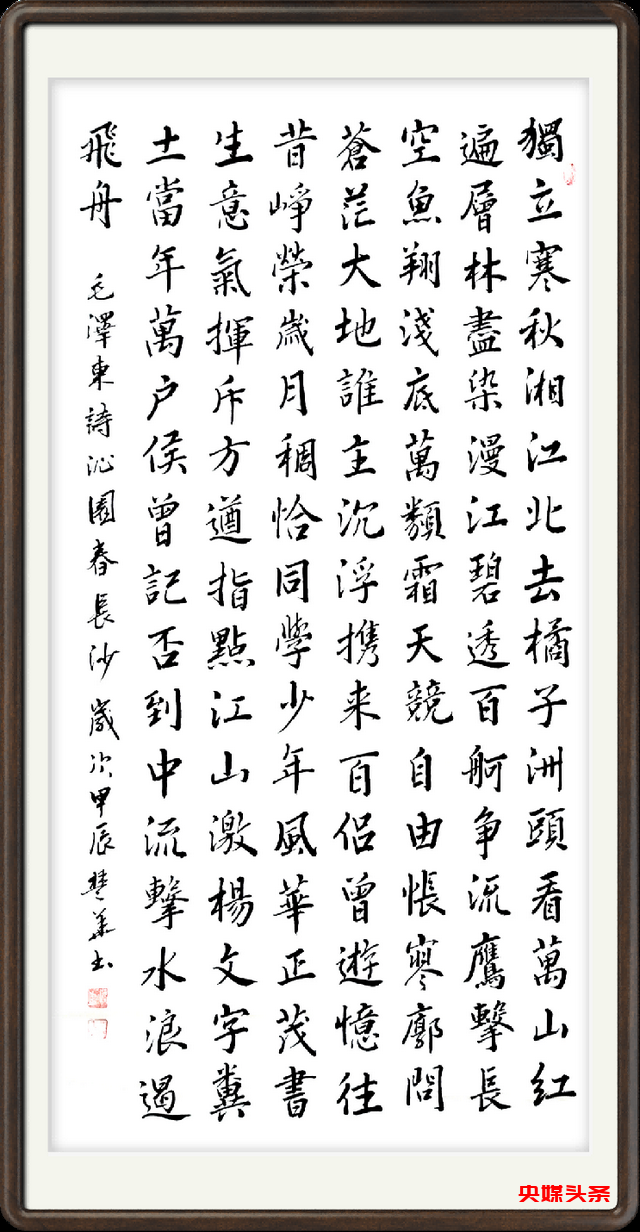 獨立寒秋湘江北去橘子洲頭看萬山红
遍層林盡染漫江碧透百舸争流鷹擊長
空魚翔淺底萬類霜天競自由悵寥廓問
蒼茫大地誰主沉浮携来百侣曾遊憶往
昔崢榮歲月稠恰同學少年風華正茂書
生意氣揮斥方遒指點江山激楊文字糞
土當年萬户侯曾記否到中流擊水浪遏
飛舟 毛澤東詩沁園春長沙 歲次甲辰楚華书
央媒头条